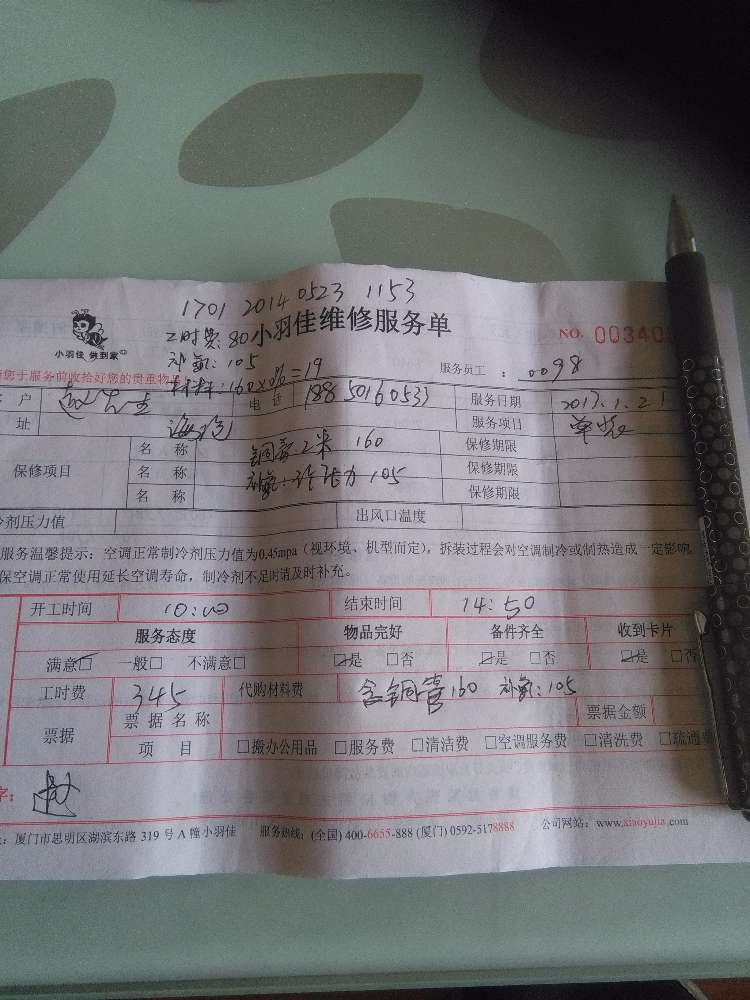 1701 2014 0523 1153
工时费:80 小羽佳维修服务单
小羽佳 做到家
NO. 00340
补氟:105
服务员工 : 0098
您于服务前收拾好您的贵重物
材料:160×0%=19
户 赵先生 电 话 188 50160533 服务日期 2017.1.21
址 服务项目 单装
保修项目 名 称 铜管2米 160 保修期限
名 称 补氟: 压力 105 保修期限
名 称 保修期限
剂压力值 出风口温度
服务温馨提示:空调正常制冷剂压力值为0.45mpa(视环境、机型而定),拆装过程会对空调制冷或制热造成一定影响
保空调正常使用延长空调寿命,制冷剂不足时请及时补充。
开工时间 10:00 结束时间 14:50
服务态度 物品完好 备件齐全 收到卡片
满意☑ 一般□ 不满意□ ☑是 □否 ☑是 □否 ☑是 □否
工时费 345 代购材料费 含铜管160 补氟:105
票据 票据名称 票据金额
项 目 □搬办公用品 □服务费 □清洁费 □空调服务费 □清洗费 □疏通费
字: 赵
:厦门市思明区湖滨东路 319 号 A 幢小羽佳 服务热线:(全国) 400-6655-888 (厦门) 0592-5178888 公司网站:www.xiaoyujia.com